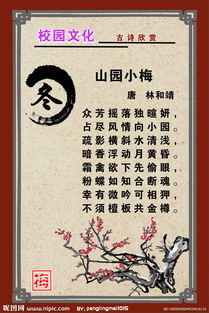 校园文化 古诗欣赏
冬
山园小梅
唐 林和靖
众芳摇落独暄妍，
占尽风情向小园。
疏影横斜水清浅，
暗香浮动月黄昏。
霜禽欲下先偷眼，
粉蝶如知合断魂。
幸有微吟可相狎，
不须檀板共金樽。
梅
昵图网 www.nipic.com BY: penglingmei1015